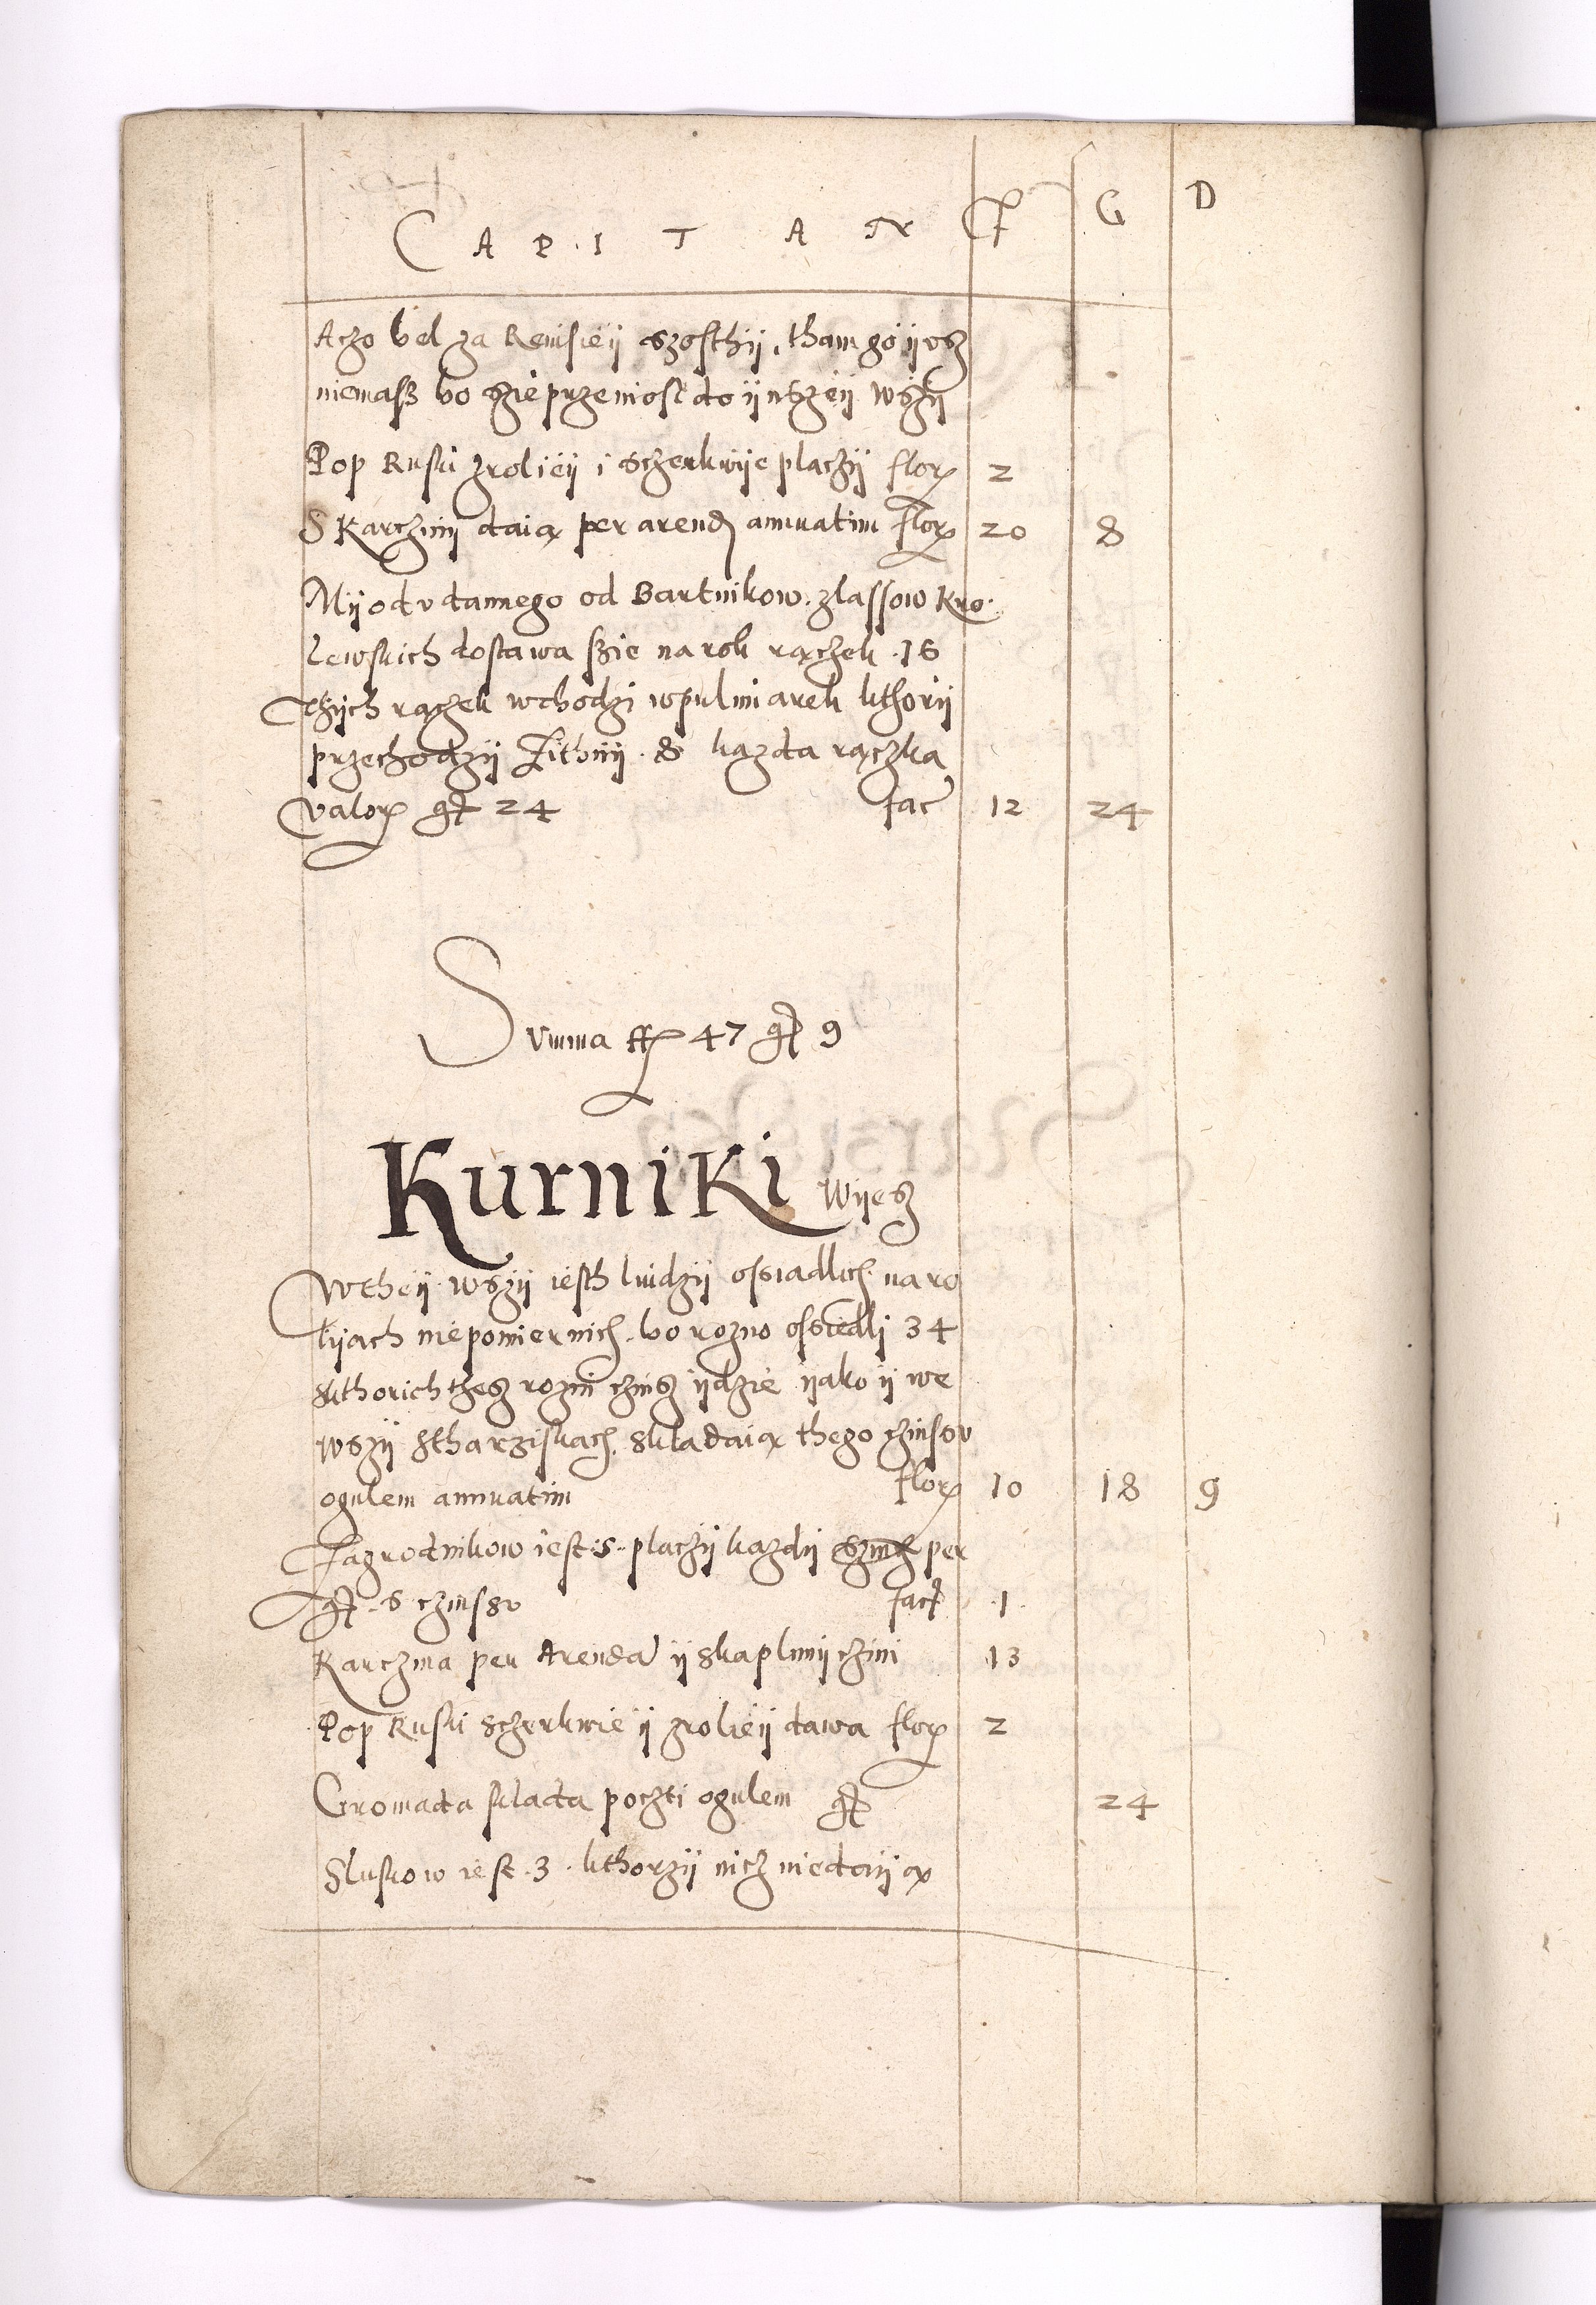 CAPITAN F G D
Aczo bel za Rewisieÿ szosthÿ, tham go ÿvsz
niemasz bo szie przeniosł do ÿnszeÿ wszÿ
Pop Ruski zrolieÿ i sczerkwÿe placzÿ flor 2
S Karczmÿ daią per arend annuatim flor 20 8
Mÿodv dannego od Bartnikow zlassow Kro
lewskich dostawa szie na rok rączek 16
Thÿch rączek wchodzi wpulmiarek kthorÿ
przechodzÿ Zithmÿ 8 kazda rączka
valor gr 24 fac 12 24
Summa fl 47 gr 9
Kurniki Wÿesz
Wtheÿ wszÿ iesth luidzÿ ossiadlich na ro
lÿach niepomiernich bo rozno ossiedli 34
skthorich thesz rozni czinsz ÿdzie ÿako ÿ we
wszÿ Stharziskach, skladaią thego czinsov
ogulem annuatim flor 10 18 9
Zagrodnikow iest 5 placzÿ kazdÿ per
gr 6 czinssv fact 1
Karczma per Arenda ÿ skaplunÿ czini 13
Pop Ruski sczerkwie ÿ zrolieÿ dawa flor 2
Gromada sklada poczti ogulem gr 24
Sluskow iest 3 kthorzÿ nicz niedaÿą